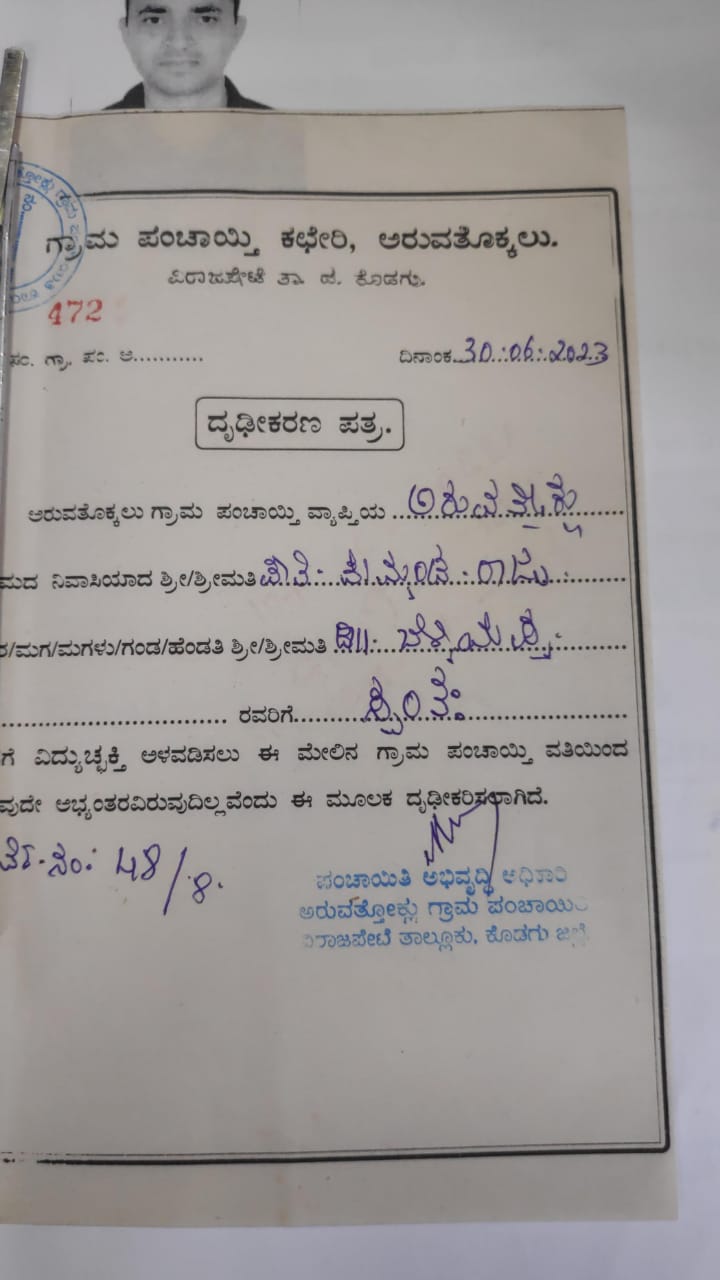 ಗ್ರಾಮ ಪಂಚಾಯ್ತಿ ಕಛೇರಿ, ಅರುವತೊಕ್ಕಲು.
ವಿರಾಜಪೇಟೆ ತಾ. ದ. ಕೊಡಗು.
472
ಸಂ. ಗ್ರಾ. ಪಂ. ಅ...........
ದಿನಾಂಕ 30.06.2023
ದೃಢೀಕರಣ ಪತ್ರ.
ಅರುವತೊಕ್ಕಲು ಗ್ರಾಮ ಪಂಚಾಯ್ತಿ ವ್ಯಾಪ್ತಿಯ
ಮದ ನಿವಾಸಿಯಾದ ಶ್ರೀ/ಶ್ರೀಮತಿ ರಾಜು
ರ/ಮಗ/ಮಗಳು/ಗಂಡ/ಹೆಂಡತಿ ಶ್ರೀ/ಶ್ರೀಮತಿ
ರವರಿಗೆ
ಗೆ ವಿದ್ಯುಚ್ಛಕ್ತಿ ಅಳವಡಿಸಲು ಈ ಮೇಲಿನ ಗ್ರಾಮ ಪಂಚಾಯ್ತಿ ವತಿಯಿಂದ
ವುದೇ ಅಭ್ಯಂತರವಿರುವುದಿಲ್ಲವೆಂದು ಈ ಮೂಲಕ ದೃಢೀಕರಿಸಲಾಗಿದೆ.
ನಂ: 48/8.
ಪಂಚಾಯಿತಿ ಅಭಿವೃದ್ಧಿ ಅಧಿಕಾರಿ
ಅರುವತ್ತೋಕ್ಲು ಗ್ರಾಮ ಪಂಚಾಯಿ
ವಿರಾಜಪೇಟೆ ತಾಲ್ಲೂಕು, ಕೊಡಗು ಜಿಲ್ಲೆ